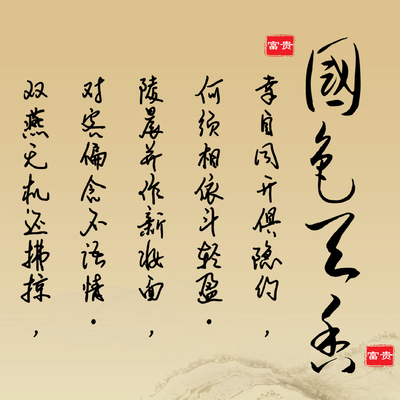 富贵
國色天香
幸自同开俱隐约，
何须相依斗轻盈。
陵晨并作新妆面，
对客偏念不语情。
双燕无机还拂掠，
富贵